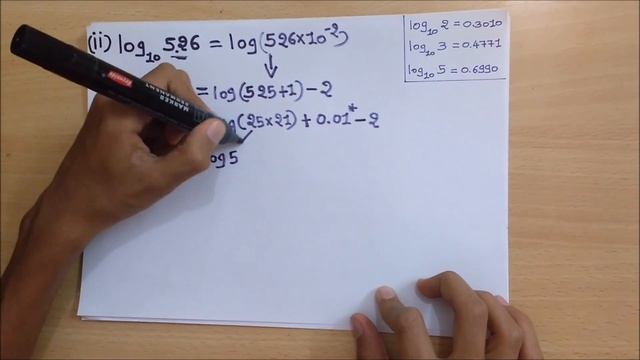 (ii) log₁₀ 5.26 = log(526×10⁻²)
↓
= log(525+1) - 2
(25×21) + 0.01* - 2
log5
log₁₀ 2 = 0.3010
log₁₀ 3 = 0.4771
log₁₀ 5 = 0.6990
MARKER
PERMANENT